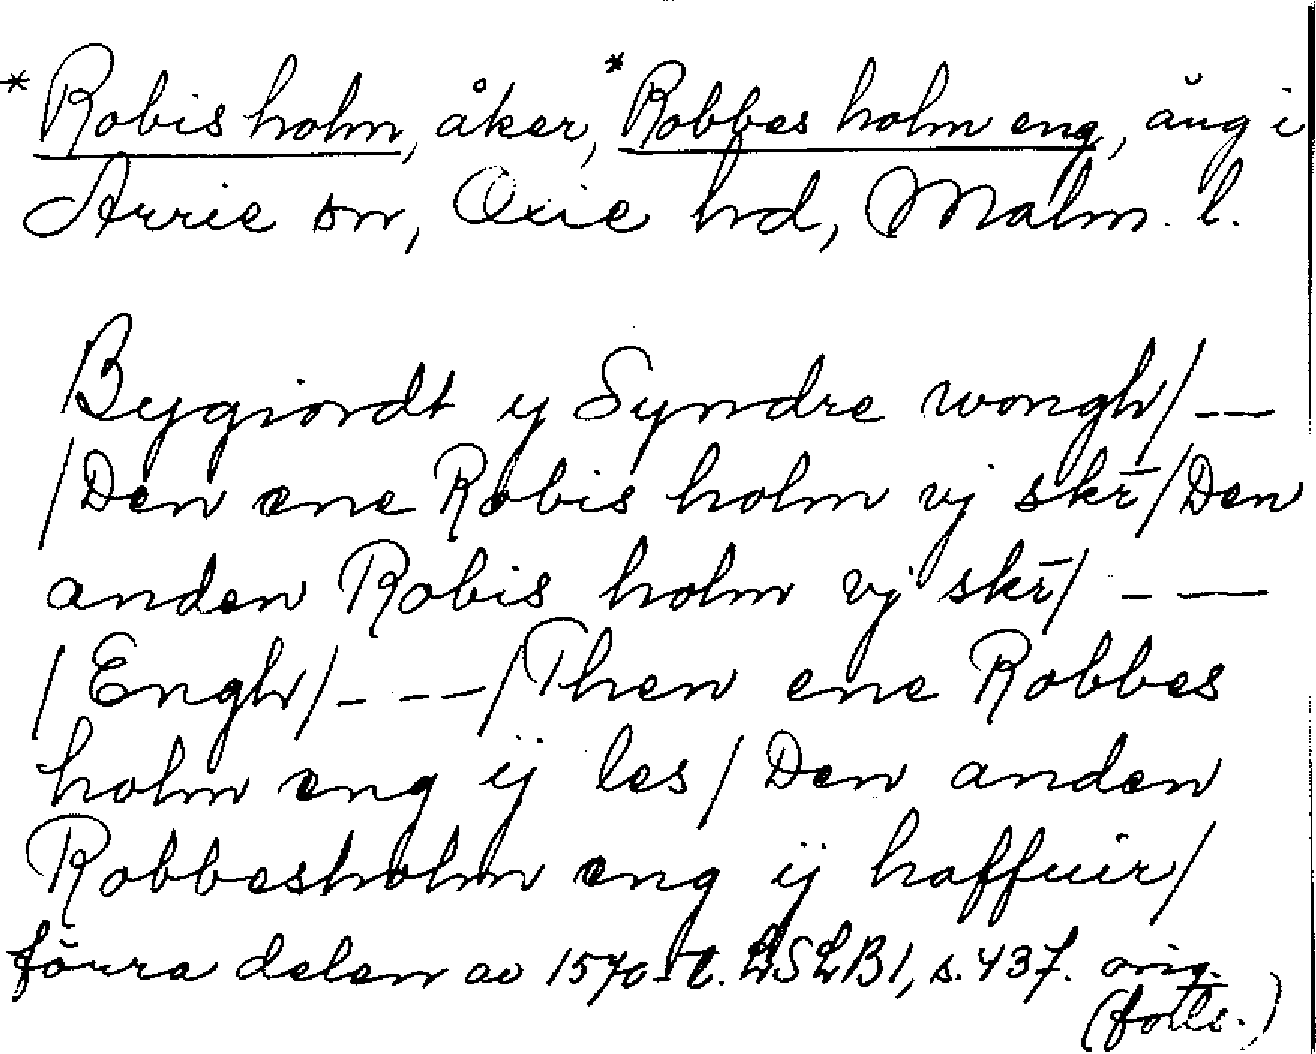 *Robis holm, åker, *Robbes holm eng, äng i
Arrie sn, Oxie hd, Malm. l.
Bygiordt y Syndre wongh/ – —
/Den ene Robis holm vj skr̄/Den
anden Robis holm vj skr̄/ – —
/Engh/ – – —/Then ene Robbes
holm eng ij les/ Den anden
Robbesholm eng ij haffuir/
förra delen av 1570-t. LSLB1, s. 437. orig.
(forts.)